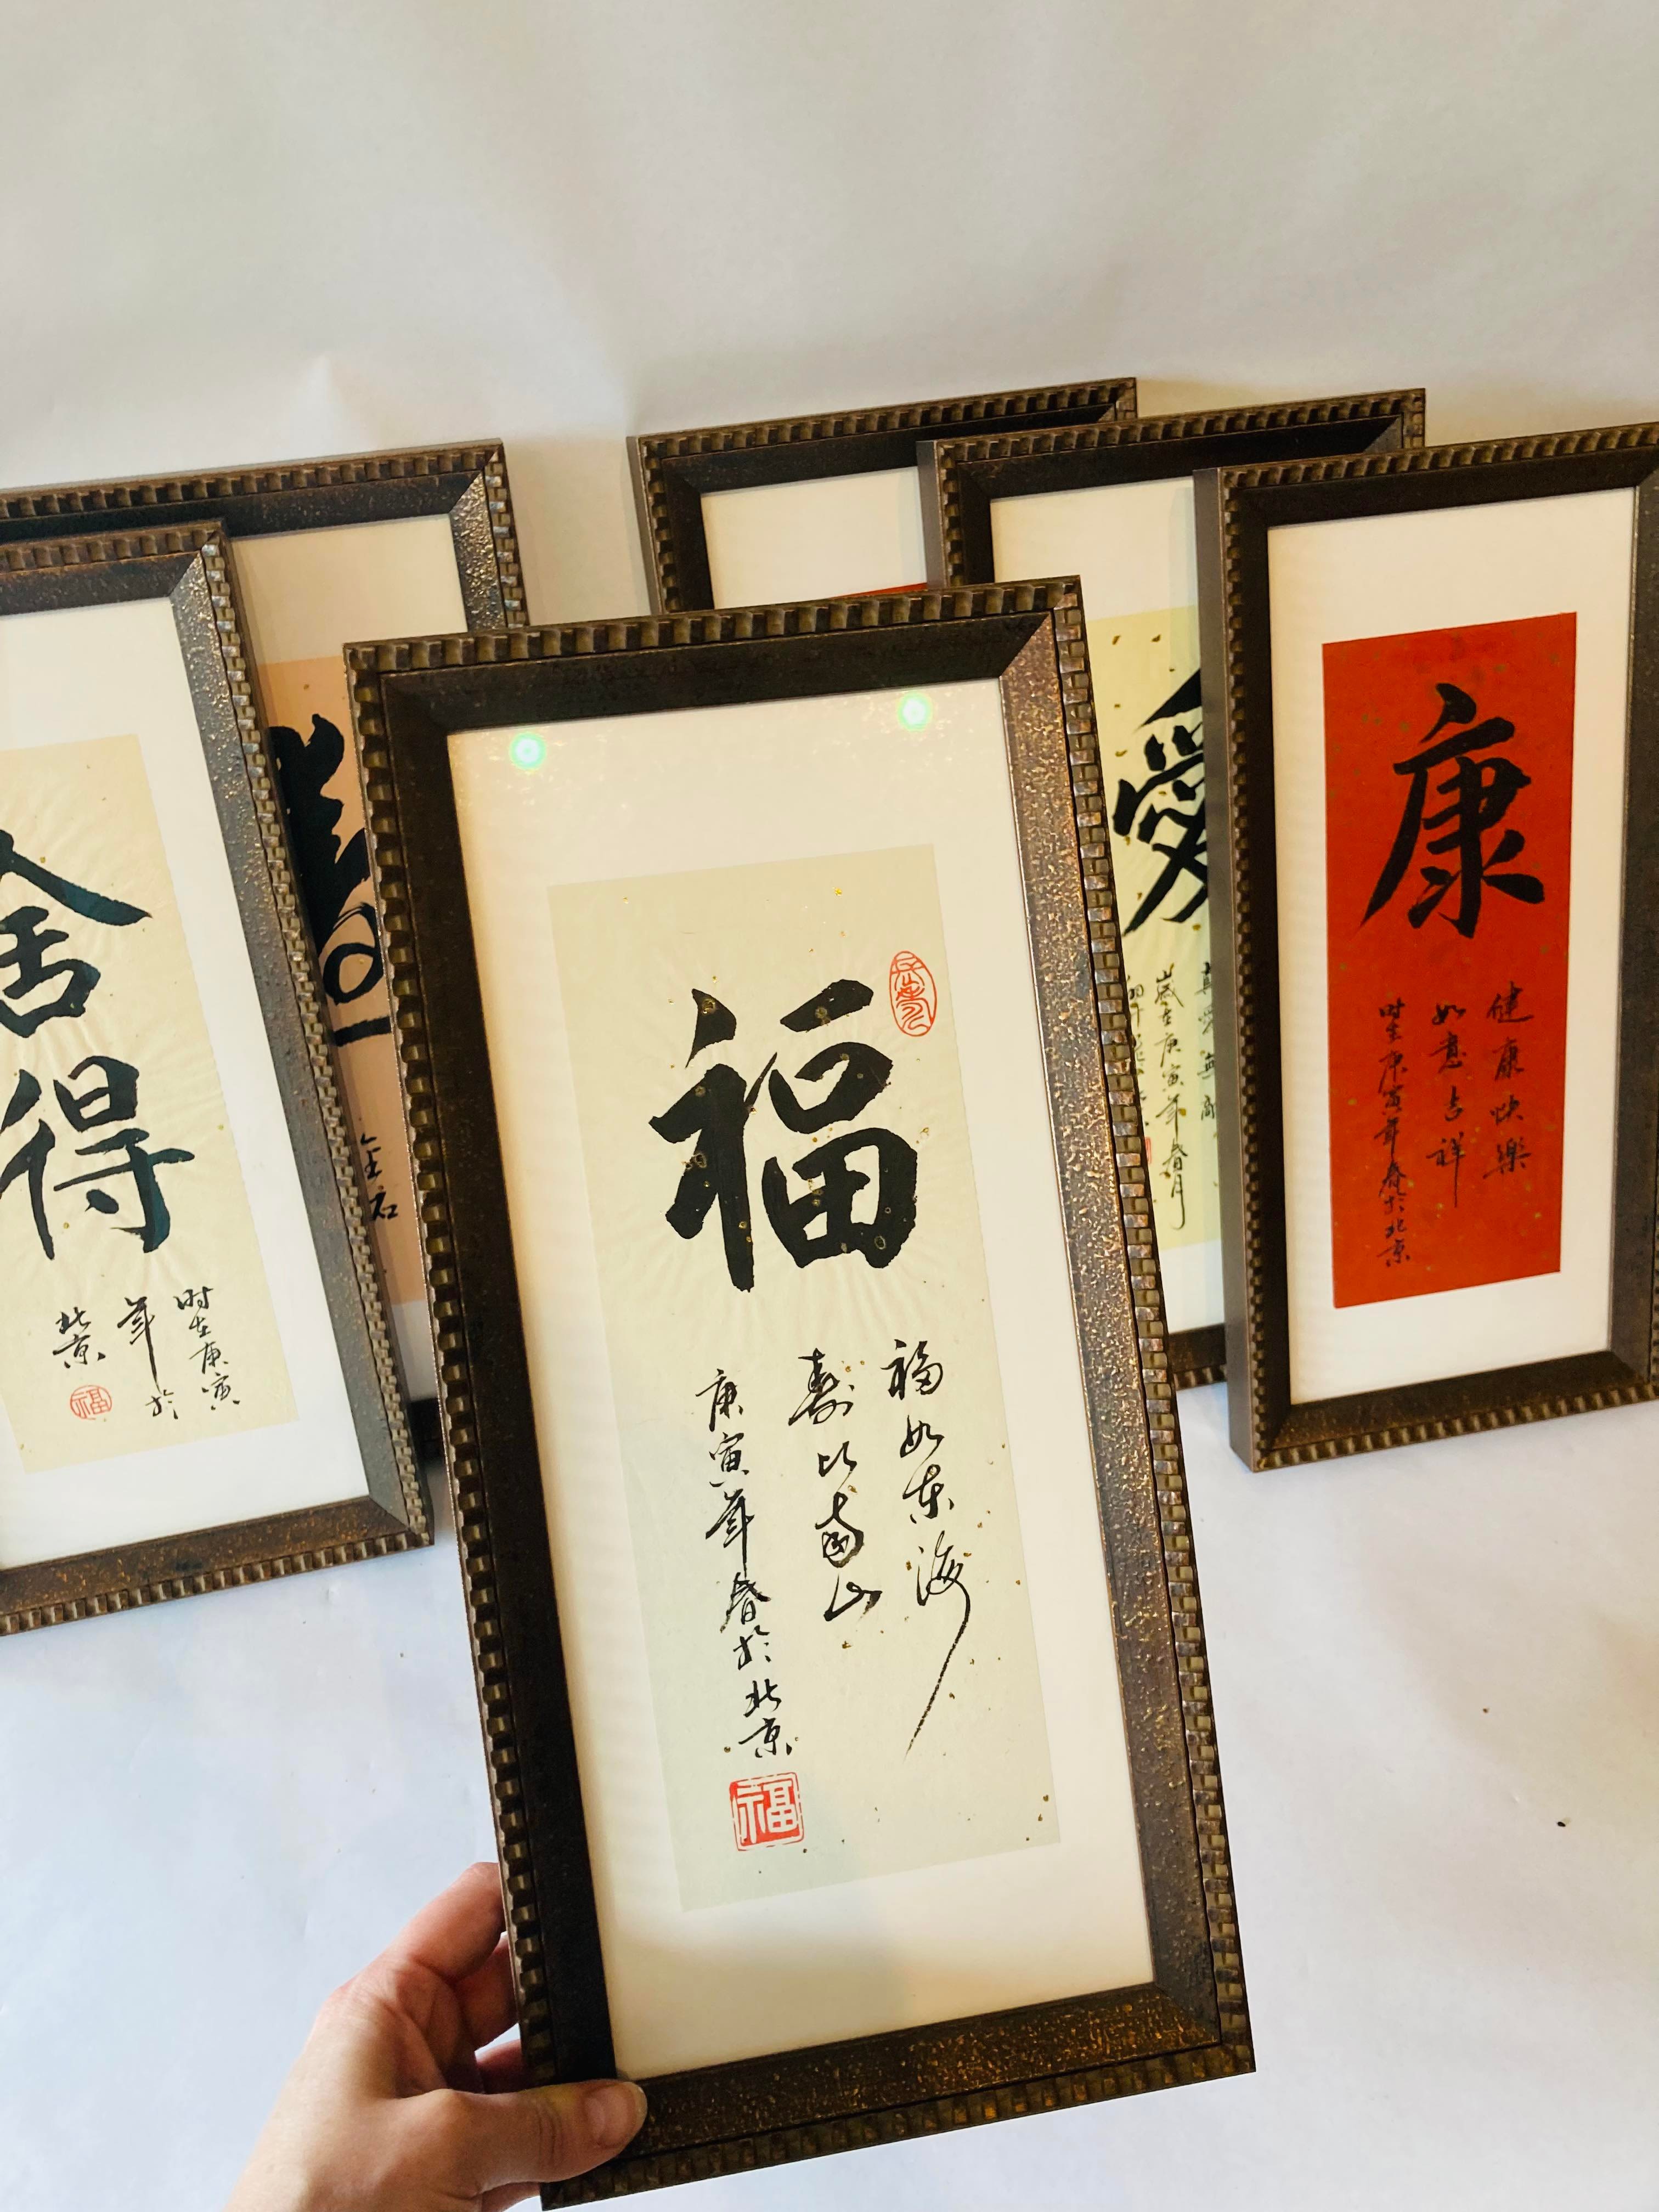 福
福如东海
寿比南山
庚寅年春於北京
福
舍
得
时在庚寅
年於
北京
福
金石
愛
歲在庚寅年春月
康
健康快樂
如意吉祥
时在庚寅年春於北京